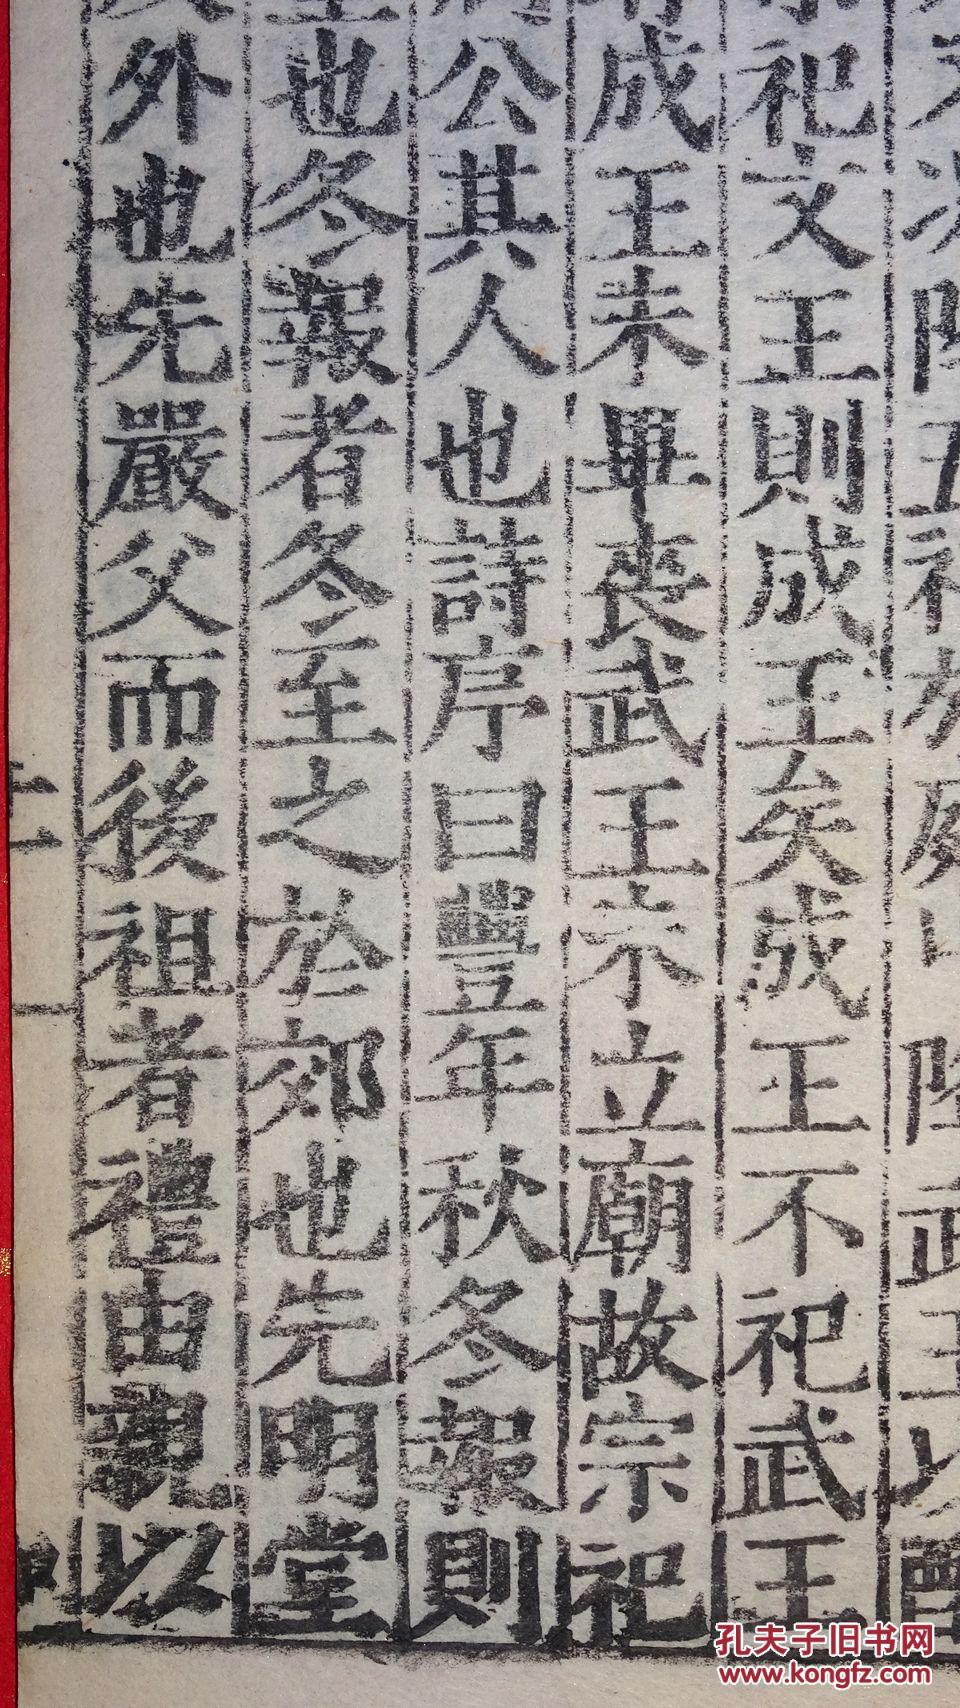 祀文王則成王矣成王不祀武王
成王未畢喪武王未立廟故宗祀
公其人也詩序曰豐年秋冬報則
也冬報者冬至之於郊也先明堂
外也先嚴父而後祖者禮由親以
孔夫子旧书网
www.kongfz.com